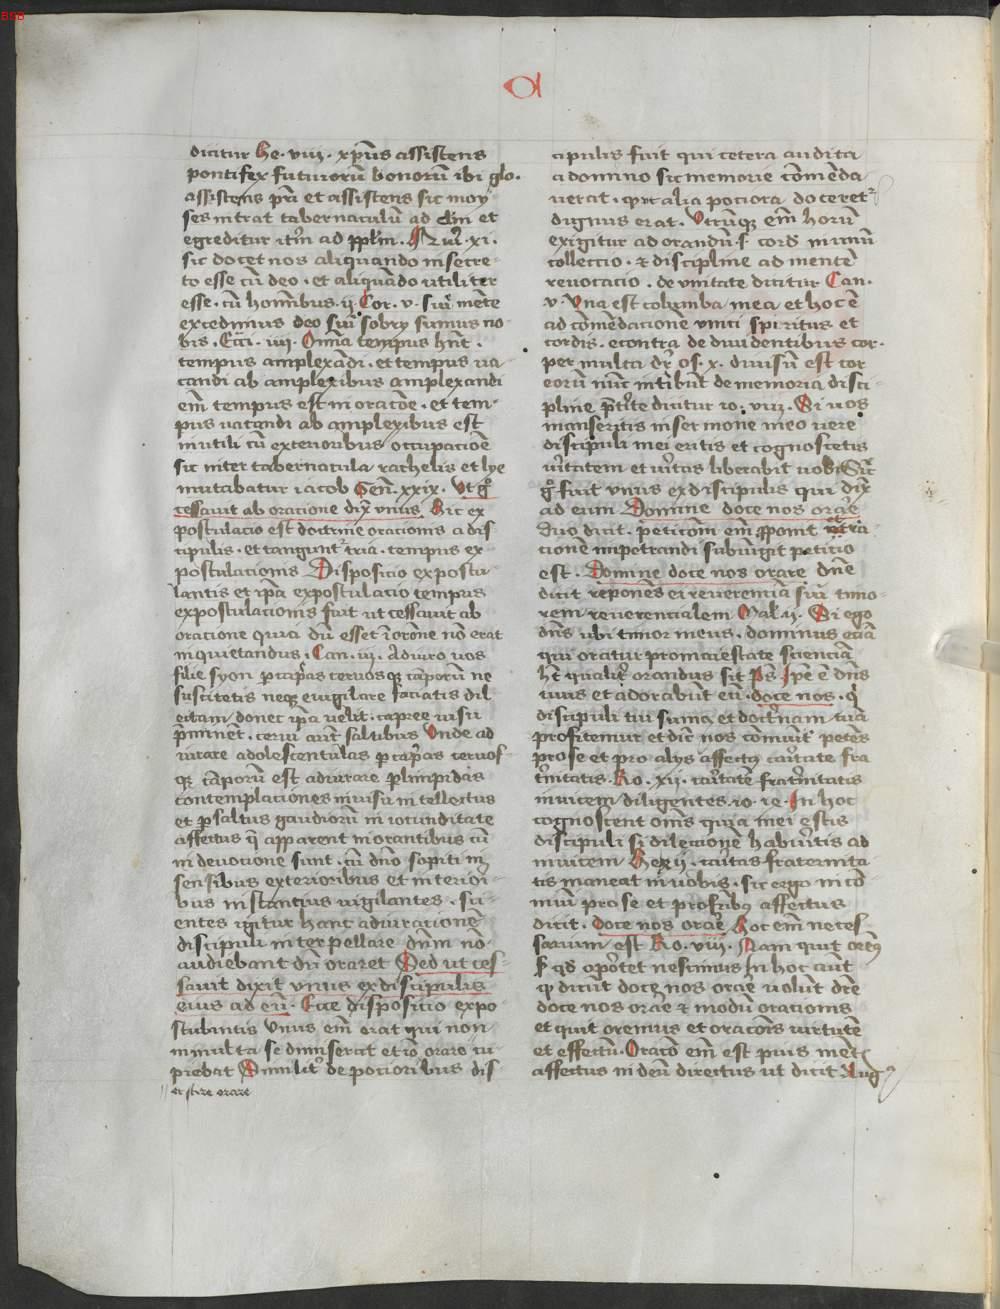 BSB
dicitur he. viii. xp̄us assistens
pontifex futurorū bonorū ibi glo.
assistens pr̄i et assistens sic moy
ses intrat tabernaculū ad dn̄m et
egreditur itm̄ ad pplm̄. xi.
sic docet nos aliquando in secre
to esse cū deo. et aliquādo utiliter
esse. cū hominibus. ii. Cor. v. siue mēte
excedimus deo siue sobrij sumus no
bis. Ecci. iii. Omnia tempus hn̄t.
tempus amplexādi. et tempus ua
candi ab amplexibus amplexandi
em̄ tempus est in oracōe. et tem
pus uacandi ab amplexibus est
in utili cū exterioribus occupacōe
sic inter tabernacula rachelis et lye
mutabatur iacob Gen̄. xxix. Vt gͦ
cessauit ab oracione dix̄ vnus. Hic ex
postulacio est doctrine oracionis a dis
cipulis. et tangunt᷑ tria. tempus ex
postulacionis Disposicio expostu
lantis et ip̄a expostulacio tempus
expostulacionis fuit ut cessauit ab
oracione quia dū esset ī orōne nō erat
inquietandus. Can. iii. Adiuro uos
filie syon p capreas ceruos qꝫ camporū ne
suscitetis neqꝫ euigilare faciatis dil
ectam donec ip̄a uelit. capree uisu
p̄minent. cerui aūt saltibus Vnde ad
iurare adolescentulas p capreas ceruos
qꝫ cāporū est adiurare p limpidas
contemplaciones in uisu intellectus
et p saltus gaudiorū in iocunditate
affectus q̄ apparent in orantibus cū
in deuocione sunt. cū dn̄o sopiti in
sensibus exterioribus et in teriori
bus instancius uigilantes. sci
entes igitur hanc adiuracionē
discipuli interpellare dn̄m nō
audiebant dū oraret Sed ut ces
sauit dixit vnus ex discipulis
eius ad eū. Ecce disposicio expo
stulantis Vnus em̄ erat qui non
in multa se diuiserat et iō orare cu
piebat Similit᷑ de pocioribus dis
et scire orare
cipulis fuit qui cetera audita
a domino sic memorie cōmēda
uerat. qr̄ et alia pociora doceret᷑
dignus erat. Vtrūqꝫ em̄ horū
exigitur ad orandū s. cordis in unū
colleccio. ⁊ discipline ad mentē
reuocacio. de vnitate dicitur Can.
v. Vna est columba mea et hoc ē
ad cōmēdacionē vnici spiritus et
cordis. econtra de diuidentibus cor.
per multa dr̄ os. x. diuisū est cor
eorū nūc intibūt de memoria disci
pline p̄cīte dicitur io. viii. Si uos
manseritis in sermone meo uere
discipuli mei eritis et cognoscetis
ūitatem et ūitas liberabit uos. Sic
gͦ fuit vnus ex discipulis qui dix̄
ad eum Domine doce nos orare
duo dicit. peticōm em̄ p̄ponit
cionē impetrandi subiūgit peticio
est. Domine doce nos orare dn̄e
dicit repōnes ei reuerenciā siue timo
rem reuerencialem Mal. ii. Si ego
dn̄s ubi timor meus. dominus eciā
qui oratur pro maiestate scienciā
hꝫ qualit᷑ orandus sit ps̄. Ipe ē dn̄s
tuus et adorabūt eū. doce nos. qͥ
discipuli tui sumus et doctnam tuā
profitemur et dic̄ nos cōmūit᷑ petēs
pro se et pro alijs affectu caritate fra
tnitatis. Ro. xii. caritatē fratnitatis
inuicem diligentes. io. ie. In hoc
cognoscent om̄s quia mei estis
discipuli si dilecionē habūitis ad
inuicem Heb. ii. caritas fraternita
tis maneat in uobis. sic ergo in cō
muni pro se et pro fratribꝰ affectus
dicit. doce nos orare Hoc em̄ neces
sarium est Ro. viii. Nam quit oremꝰ
s qd oportet nescimus In hoc aūt
qͥ dicūt doce nos orare uolūt dicere
doce nos orare ⁊ modū oracionis
et quit oremus et oraconis uirtutē
et effectū. Oracō em̄ est pius mentis
affectus in deū directus ut dicit Augꝰ